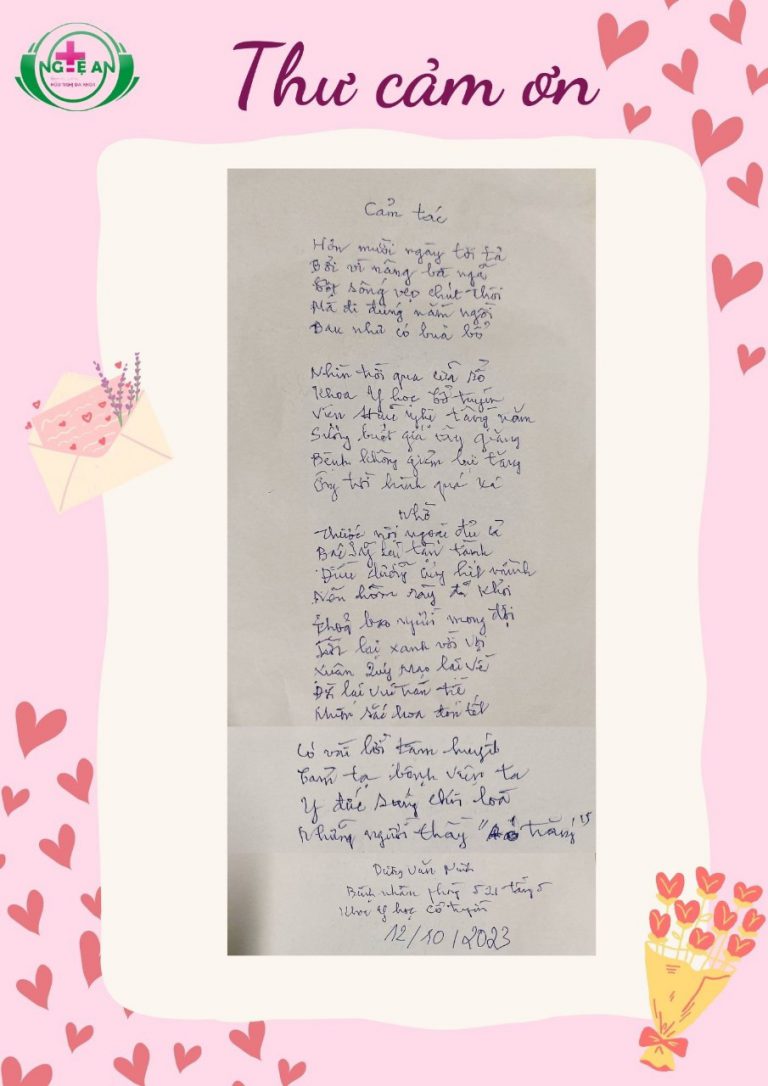 NGHỆ AN
HỮU NGHỊ ĐA KHOA
Thư cảm ơn
Cảm tác
Hơn mười ngày tơi tả
Bởi vì nâng bà ngã
sống vẹo chút thôi
Mà đi đứng nằm ngồi
Đau như có buà bổ
Nhìn trời qua cửa sổ
Khoa Y học cổ truyền
Viện Hữu nghị tầng năm
Sương buốt giá giăng
Bệnh không giảm lại tăng
Ông trời hành quá xá
Nhờ
Thuốc nội ngoại đủ cả
Bác sỹ lại tận tành
Điều dưỡng cũng hết mình
Nên hôm rày đã khỏi
Thoả bao người mong đợi
lại xanh vời vợi
Xuân Quý Mạo lại về
Đã lại vui
Muôn sắc hoa đón tết
Có vài lời tâm huyết
Cảm tạ bệnh viện ta
Y đức sáng chói loà
Những người thầy "áo trắng"
Dương Văn
Bệnh nhân phòng 521 tầng 5
Khoa Y học cổ truyền
12/10/2023